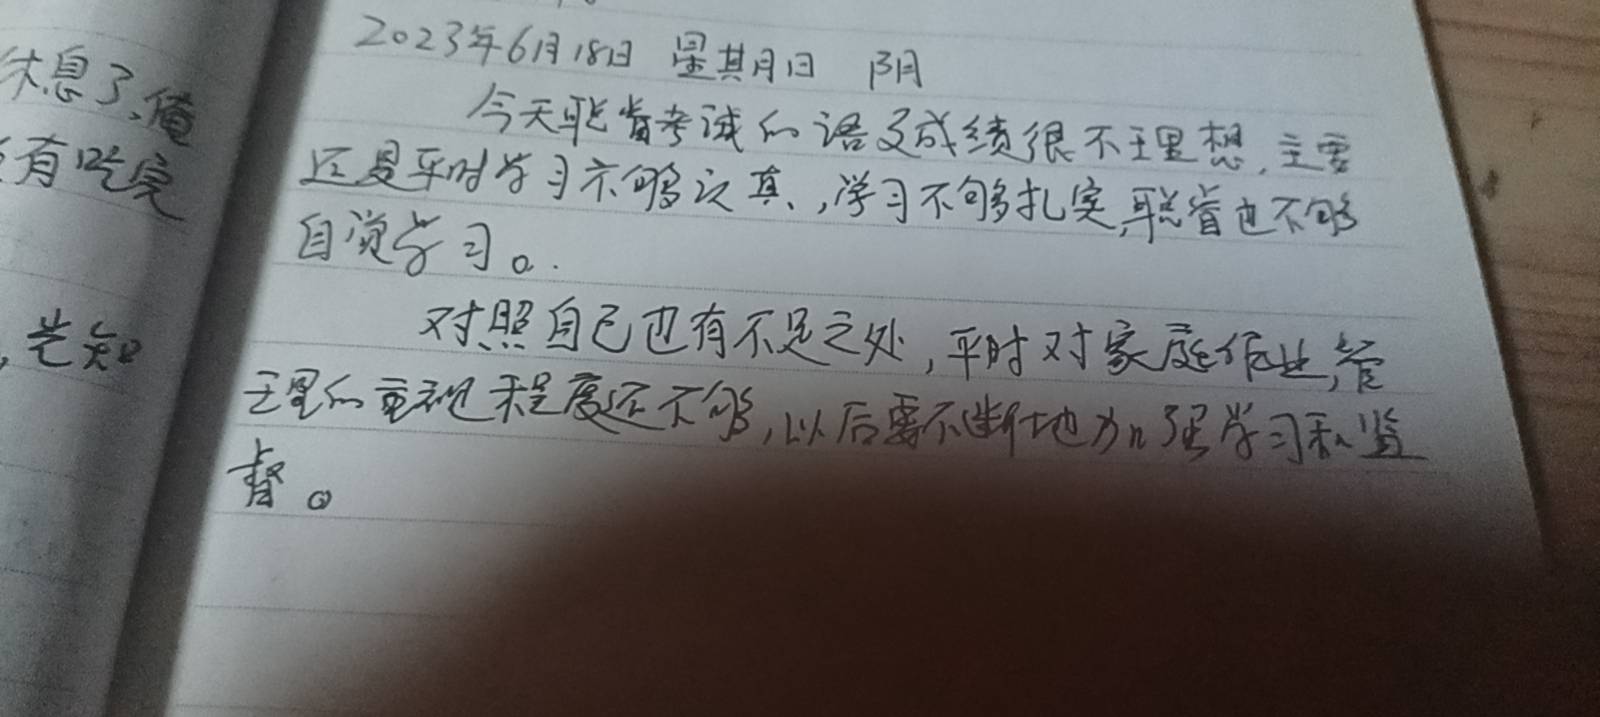 2023年6月18日 星其月日 阴
今天聪睿考试的语文成绩很不理想,主要
还是平时学习不够认真、,学习不够扎实,聪睿也不够
自觉学习。.
对照自己也有不足之处,平时对家庭作业,管
理的重视程度还不够,以后要不断地加强学习和监
督。
休息了,俺
有吃完
,告知